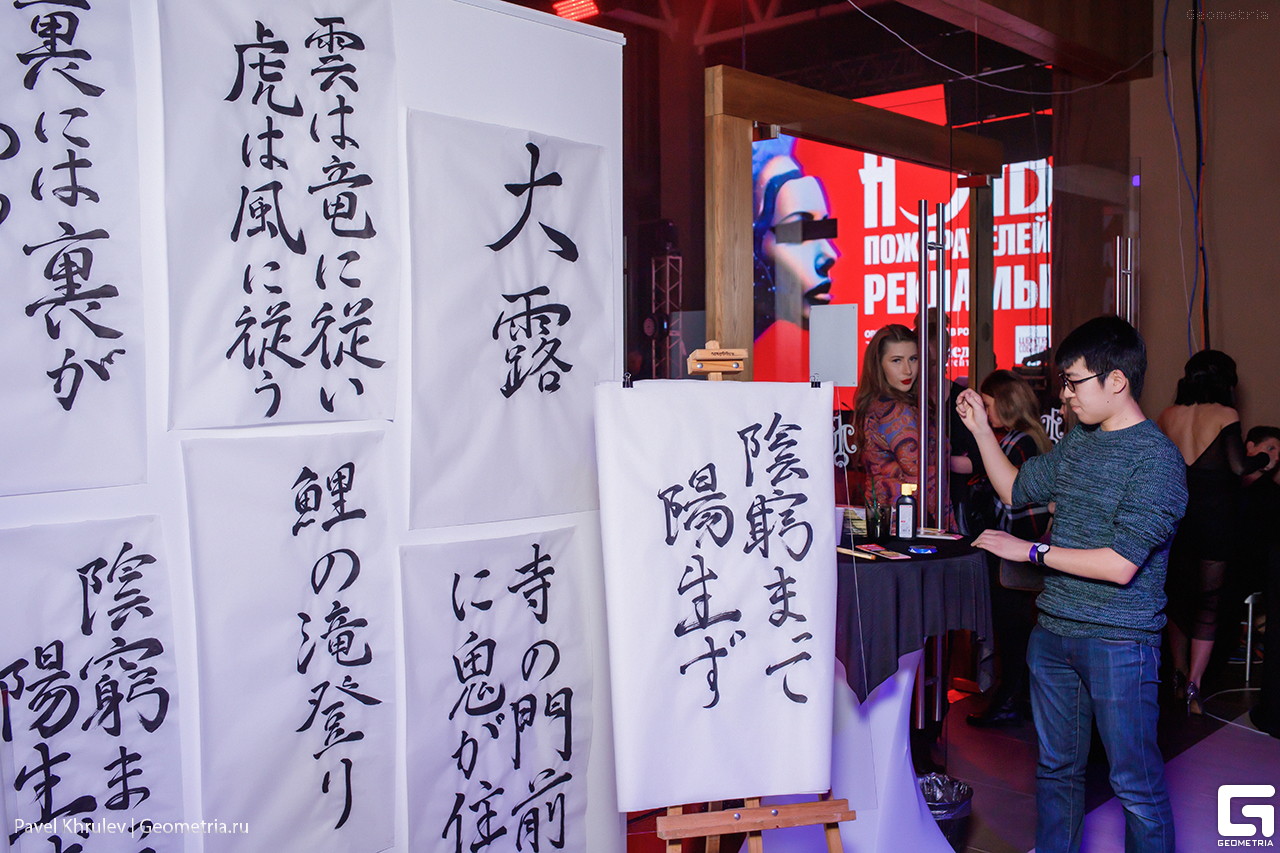 裏には裏が
雲は竜に従い
虎は風に従う
大露
陰窮ま
陽生
鯉の滝登り
寺の門前
に鬼が住
陰窮まてこ
陽生ず
НОЧЬ
ПОЖИРАТЕЛЕЙ
РЕКЛАМЫ
Geometria
Pavel Khrulev | Geometria.ru
GEOMETRIA